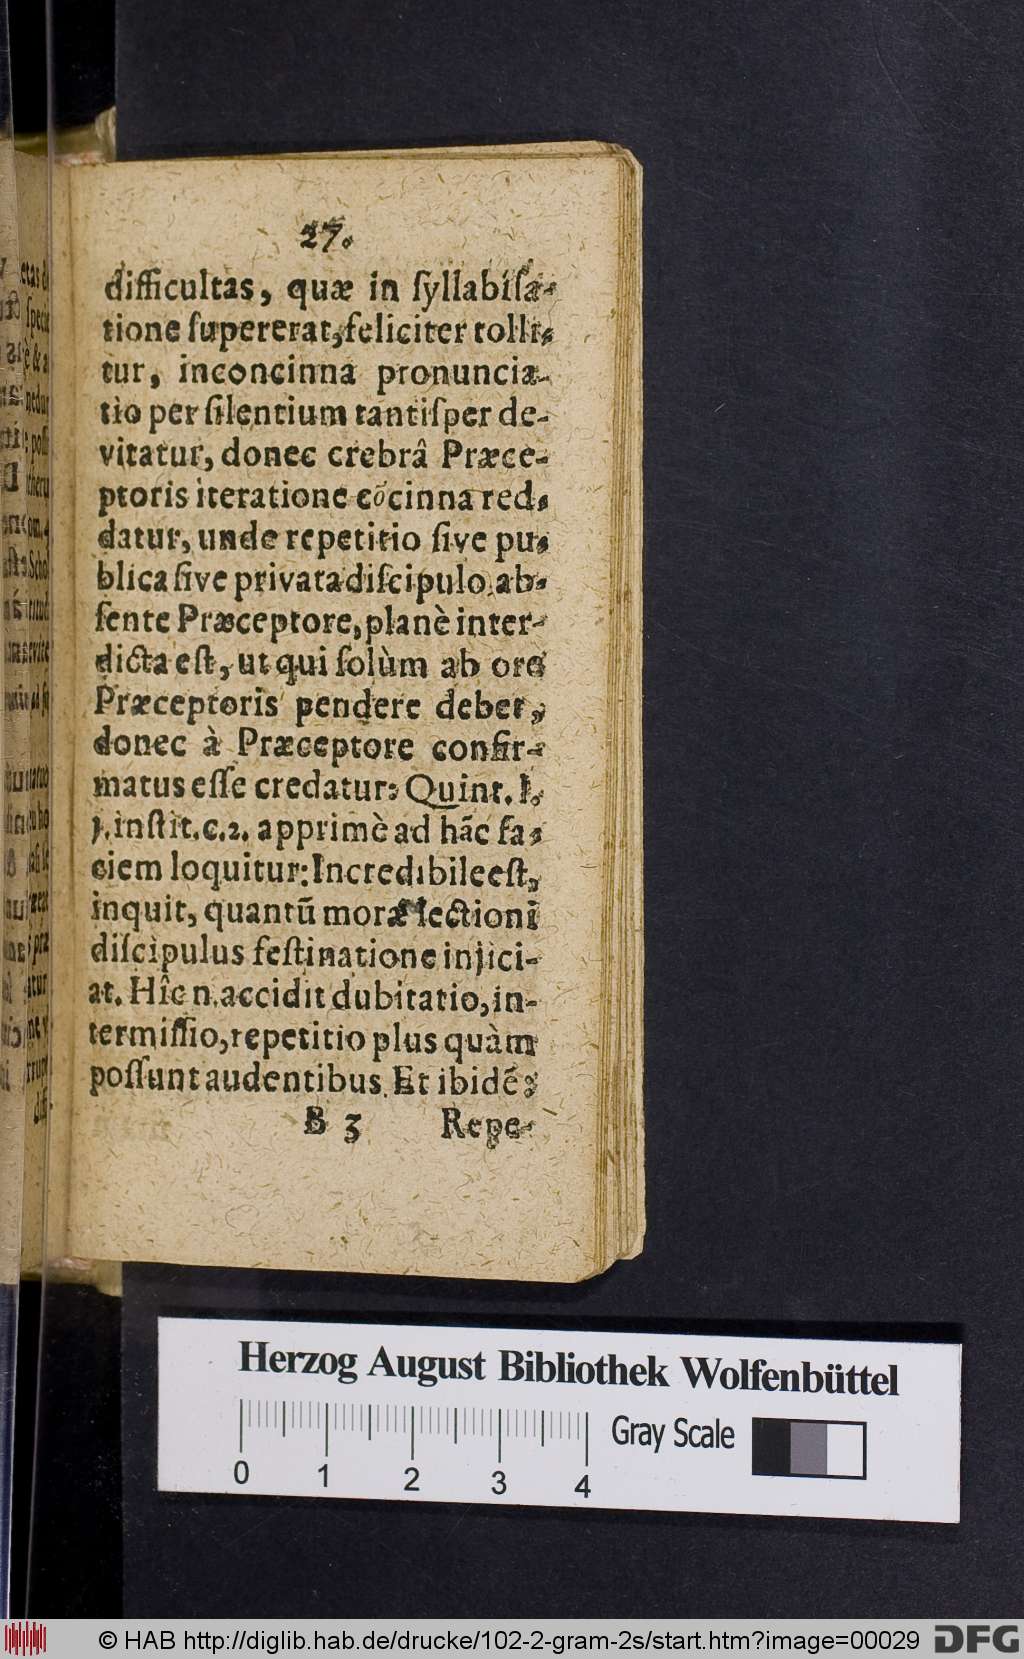 27.
difficultas, quæ in ſyllabiſa-
tione ſupererat, feliciter tolli-
tur, inconcinna pronuncia-
tio per ſilentium tantiſper de-
vitatur, donec crebrâ Præce-
ptoris iteratione cõcinna red-
datur, unde repetitio ſive pu-
blica ſive privata diſcipulo ab-
ſente Præceptore, planè inter-
dicta eſt, ut qui ſolùm ab ore
Præceptoris pendere debet,
donec à Præceptore confir-
matus eſſe credatur: Quint. l.
j. inſtit. c. 2. apprimè ad hãc fa-
ciem loquitur: Incredibile eſt,
inquit, quantũ moræ lectioni
diſcipulus feſtinatione injici-
at. Hîc n. accidit dubitatio, in-
termiſſio, repetitio plus quàm
poſſunt audentibus. Et ibidẽ:
B 3 Repe-
Herzog August Bibliothek Wolfenbüttel
Gray Scale
0 1 2 3 4
© HAB http://diglib.hab.de/drucke/102-2-gram-2s/start.htm?image=00029 DFG